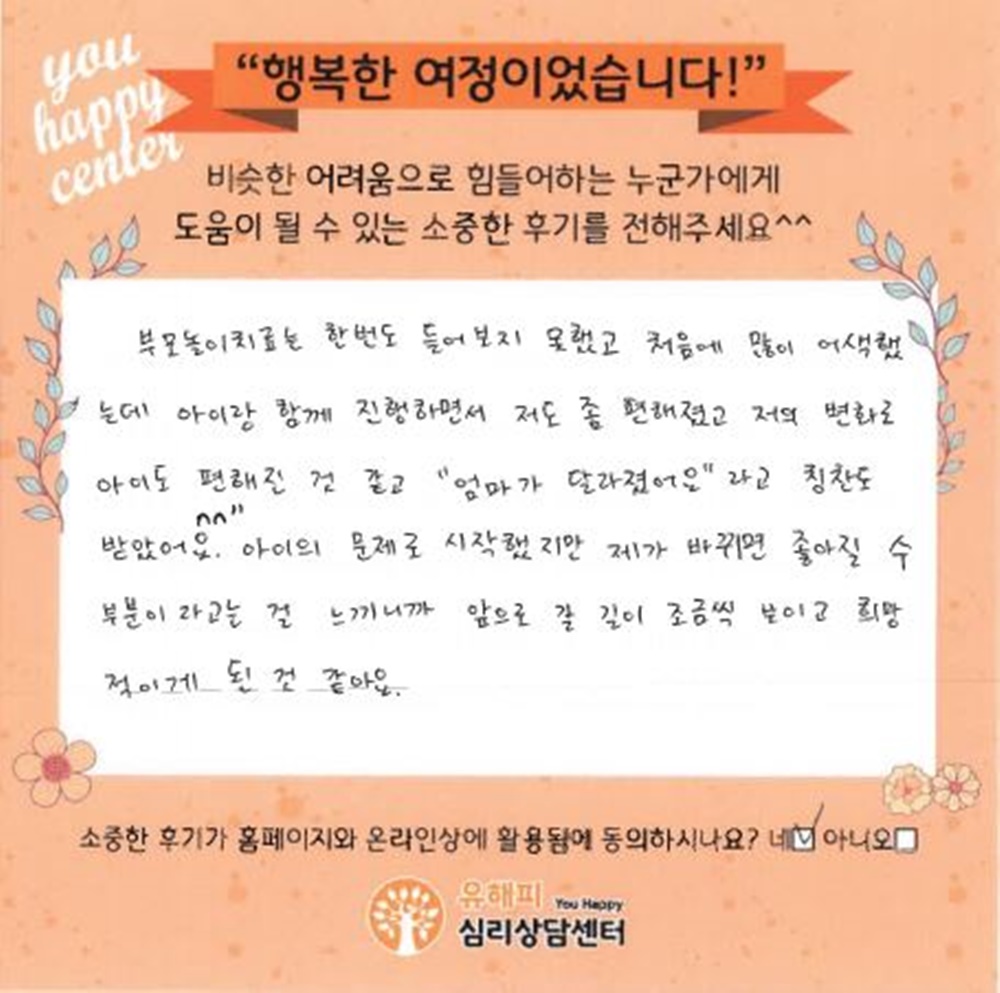 you
happy
center
“행복한 여정이었습니다!”
비슷한 어려움으로 힘들어하는 누군가에게
도움이 될 수 있는 소중한 후기를 전해주세요^^
부모놀이치료는 한번도 들어보지 못했고 처음에 많이 어색했
는데 아이랑 함께 진행하면서 저도 좀 편해졌고 저의 변화로
아이도 편해진 것 같고 "엄마가 달라졌어요" 라고 칭찬도
받았어요.^^" 아이의 문제로 시작했지만 제가 바뀌면 좋아질 수
부분이라고는 걸 느끼니까 앞으로 갈 길이 조금씩 보이고 희망
적이게 된 것 같아요.
소중한 후기가 홈페이지와 온라인상에 활용됨에 동의하시나요? 네☑ 아니오□
유해피 You Happy
심리상담센터